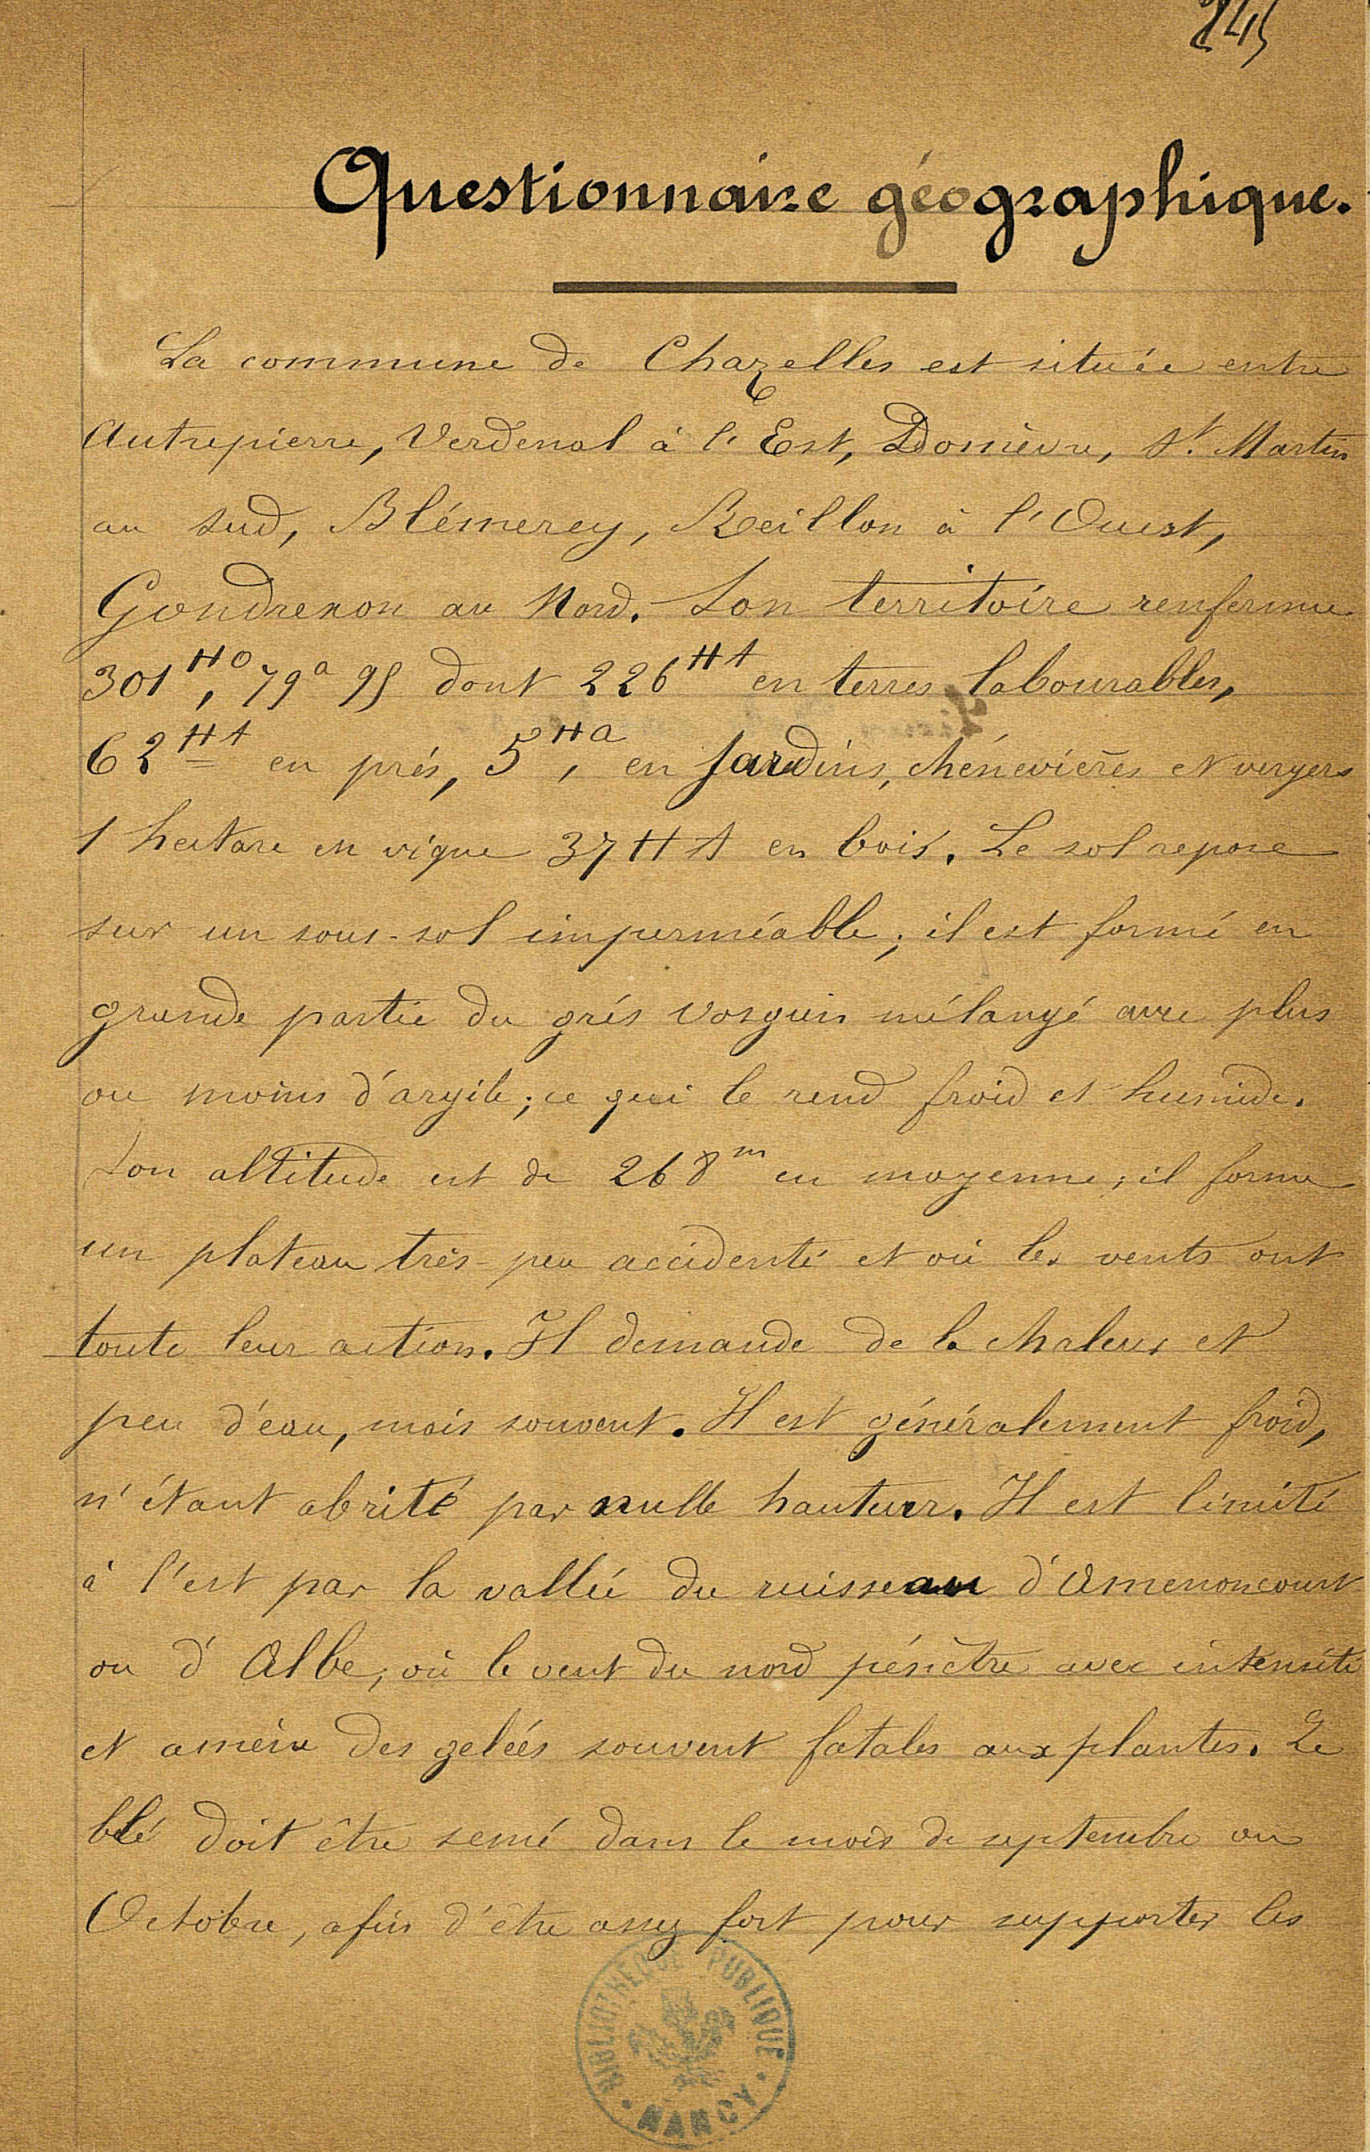 245
Questionnaire géographique.
La commune de Chazelles est située entre
Autrepierre, Verdenal à l'Est, Domèvre, St. Martin
au Sud, Blémerey, Reillon à l'Ouest,
Gondrexon au Nord. Son territoire renferme
301Ha, 79a 95 dont 226HA en terres labourables,
62HA en prés, 5Ha, en Jardins, chénevières et vergers
1 hectare en vigne 37HA en bois. Le sol repose
sur un sous-sol imperméable; il est formé en
grande partie du grés vosgien mélangé avec plus
ou moins d'argile; ce qui le rend froid et humide.
Son altitude est de 268m en moyenne; il forme
un plateau très-peu accidenté et où les vents ont
toute leur action. Il demande de la chaleur et
peu d'eau, mais souvent. Il est généralement froid,
n'étant abrité par nulle hauteur. Il est limité
à l'est par la vallée du ruisseau d'Amenoncourt
ou d'Albe, où le vent du nord pénètre avec intensité
et amène des gelées souvent fatales aux plantes. Le
blé doit être semé dans le mois de septembre ou
Octobre, afin d'être assez fort pour supporter les
BIBLIOTHÈQUE PUBLIQUE
NANCY